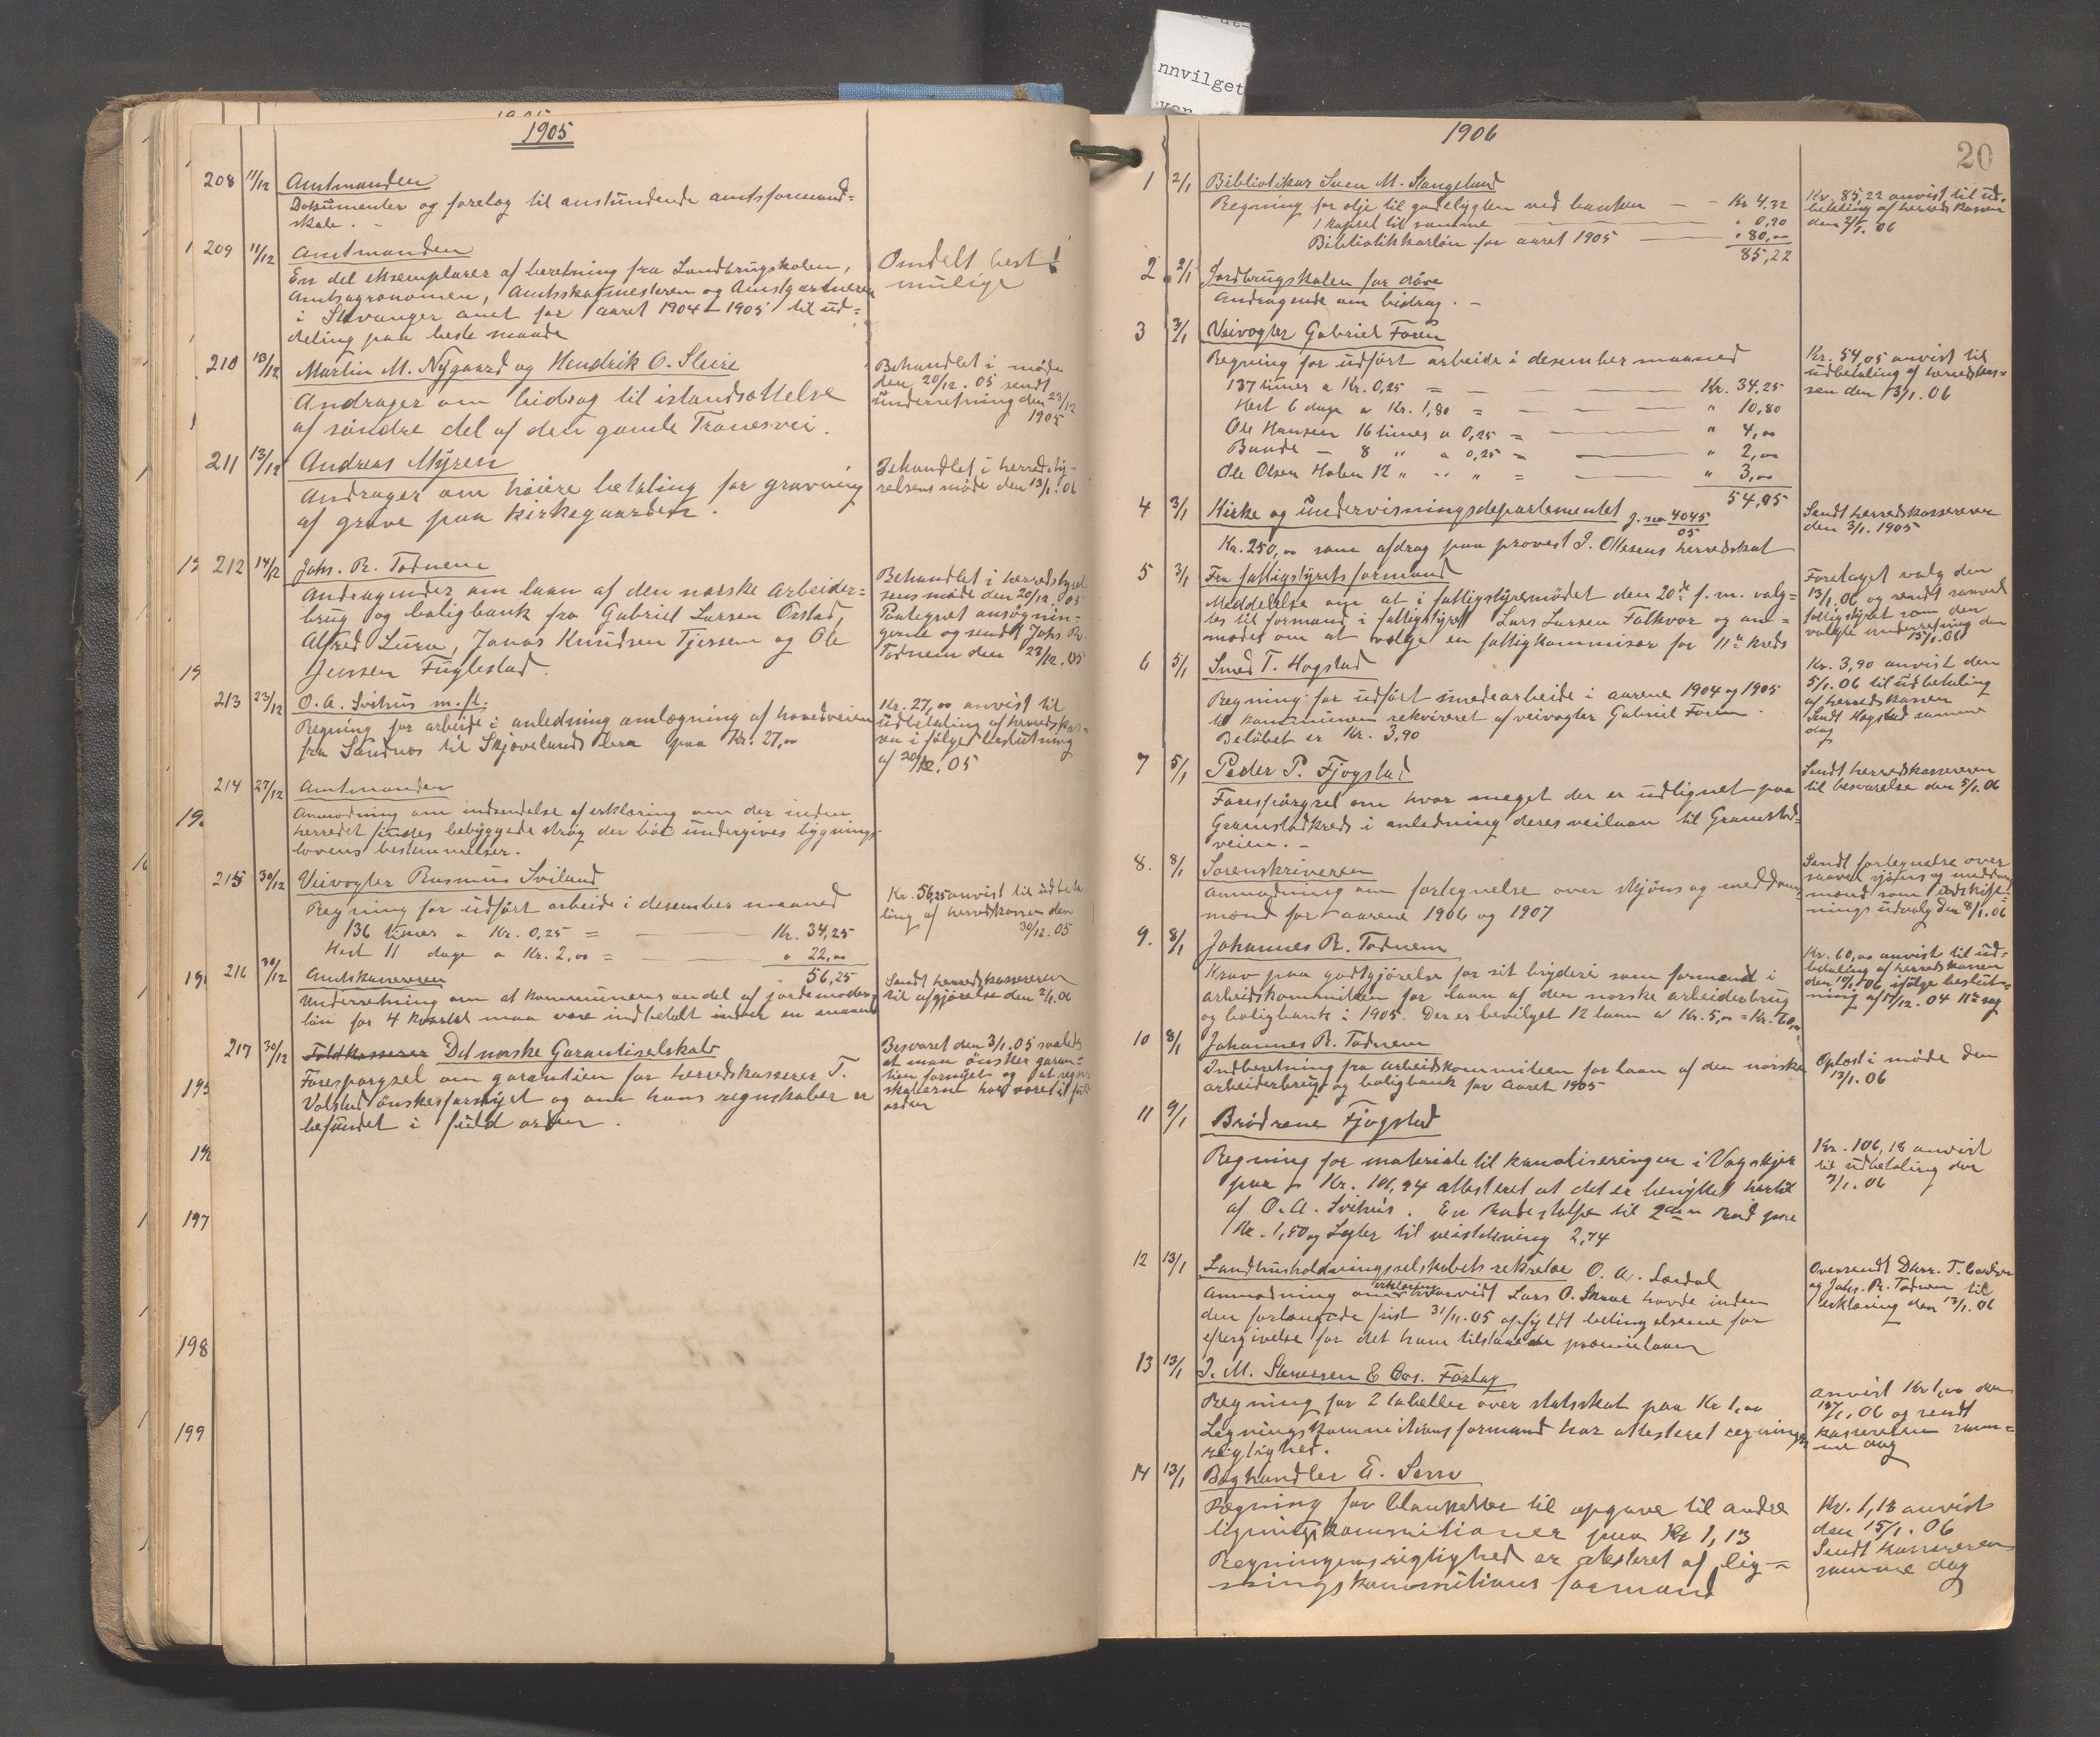 1905
208 11/12 Amtmanden
Dokumenter og forelæg til anstundende amtsformand=
skab. -
209 11/12 Amtmanden
En del eksemplarer af beretning fra Landbrugskolen,
Amtsagronomen, Amtsskogmesteren og Amtsgartneren
i Stavanger amt for aaret 1904-1905 til ud=
deling paa beste maade
Omdelt best
mulige
210 13/12 Martin M. Nygaard og Hendrik O. Sleire
Andrager om bidrag til istandsættelse
af søndre del af den gamle Tronesvei.
Behandlet i møde
den 20/12. 05 sendt
underretning den 23/12
1905
211 13/12 Andreas Myren
Andrager om høiere betaling for gravning
af grave paa kirkegaarden.
Behandlet i herredsty-
relsens møde den 13/1. 06
212 14/12 Johs. R. Todnem
Andragender om laan af den norske Arbeider=
brug og boligbank fra Gabriel Larsen Osstad,
Alfred Lura, Jonas Knudsen Tjessem og Ole
Jensen Fuglestad.
Behandlet i herredstyrel
sens møde den 20/12. 05
Paategnet ansøgnin-
gerne og sendt Johs R
Todnem den 23/12. 05
213 23/12 O. A. Svihus m. fl.
Regning for arbeide i anledning omlægning af hovedveien
fra Sandnes til Skjævelands bro paa Kr. 27,00
Kr. 27,00 anvist til
udbetaling af herredskas=
sen i følge beslutning
af 20/12. 05
214 27/12 Amtmanden
Anmodning om indsendelse af erklæring om der inden
herredet findes bebyggede strøg der bør undergives bygnings
lovens bestemmelser.
215 30/12 Veivogter Rasmus Sviland
Regning for udført arbeide i desember maaned
136 timer a Kr. 0,25 = Kr. 34,25
Hest 11 dage a Kr. 2,00 = " 22,00
56,25
Kr. 56,25 anvist til udbeta
ling af herredskassen den
30/12. 05
216 30/12 Amtskasereren
Underretning om at kommunens andel af jordemoder=
løn for 4 kvartal maa være indbetalt inden en maaned
Sendt herredskassereren
til afgjørelse den 2/1. 06
217 30/12 Det norske Garantiselskab
Forespørgsel om garantien for herredskasserer T.
Volstad ønskes fornyet og om hans regnskaber er
befundet i fuld orden.
Besvaret den 3/1. 05 saaledes
at man ønsker garan-
tien fornyet og at regn
skaberne har været i fuld
orden
197
198
199
1906
20
1 2/1 Bibliotikar Sven M. Stangeland
Regning for olje til gadelygten ved banken - - Kr 4,32
1 kapsel til samme " 0,90
Bibliotikkarløn for aaret 1905 " 80,00
85,22
Kr. 85,22 anvist til ud=
betaling af herredskassen
den 2/1. 06
2 2/1 Jordbrugskolen for døve
Andragende om bidrag. -
3 3/1 Veivogter Gabriel Foren
Regning for udført arbeide i desember maaned
137 timer a Kr. 0,25 = Kr. 34,25
Hest 6 dage a Kr. 1,80 = " 10,80
Ole Hansen 16 timer a 0,25 = " 4,00
Bunde - 8 " a 0,25 = " 2,00
Ole Olsen Holen 12 " " " = " 3,00
54,05
Kr. 54,05 anvist til
udbetaling af herredskas=
sen den 13/1. 06
4 3/1 Kirke og undervisningsdepartementet J. no 4045/05
Kr. 250,00 som afdrag paa provest J. Ottesens herredskat
Sendt herredskassereren
den 3/1. 1905
5 3/1 Fra fattigstyrets formand
Meddelelse om at i fattigstyremødet den 20de f. m. valg=
tes til formand i fattigstyret Lars Larsen Folkvor og an=
modet om at vælge en fattigkommisær for 11te kreds
Foretaget valg den
13/1. 06 og sendt saavel
fattigstyret som den
valgte underretning den
15/1. 06
6 5/1 Smed T. Hogstad
Regning for udført smedearbeide i aarene 1904 og 1905
til kommunen rekvireret af veivogter Gabriel Foren.
Beløbet er Kr. 3,90
Kr. 3,90 anvist den
5/1. 06 til udbetaling
af herredskassen
Sendt Hogstad samme
dag
7 5/1 Peder P. Fjogstad
Forespørgsel om hvor meget der er udlignet paa
Gramstadkreds i anledning deres veilaan til Gramstad=
veien. -
Sendt herredskassereren
til besvarelse den 5/1. 06
8. 8/1 Sorenskriveren
Anmodning om fortegnelse over skjøns og meddoms
mænd for aarene 1906 og 1907
Sendt fortegnelse over
saavel skjøns og meddoms
mænd som
nings udvalg den 8/1. 06
9. 8/1 Johannes R. Todnem
Krav paa godtgjørelse for sit bryderi som formand i
arbeidskommiteen for laan af den norske arbeiderbrug
og boligbank i 1905. Der er bevilget 12 laan a Kr. 5,00 = Kr. 60,00
Kr. 60,00 anvist til ud=
betaling af herredskassen
den 10/1. 06 ifølge beslut=
ning af 17/12. 04 11te sag
10 8/1 Johannes R. Todnem
Indberetning fra arbeidskommiteen for laan af den norske
arbeiderbrug og boligbank for aaret 1905
Oplæst i møde den
13/1. 06
11 9/1 Brødrene Fjogstad
Regning for materiale til kanaliseringen i Vagskjer
paa Kr. 101,94 attesteret at det er benyttet hertil
af O. A. Svihus. En til 2den Rod
Kr. 1,50 og Løgter til 2,74
Kr. 106,18 anvist
til udbetaling den
9/1. 06
12 13/1 Landhusholdningsselskabets sekretær O. A. Lørdal
Anmodning om erklæring hvorvidt Lars O. Skaar havde inden
den forlængede frist 31/11. 05 opfyldt betingelserne for
eftergivelse for det ham tilstaaede præmielaan
Oversendt Dhrr. T.
og Johs. R. Todnem til
erklæring den 13/1. 06
13 13/1 J. M. Stenersen & Cos. Forlag
Regning for 2 tabeller over statsskat paa Kr 1,00
Ligningskommitions formand har attesteret regningens
rigtighed.
anvist Kr 1,00 den
15/1. 06 og sendt
kassereren sam=
me dag
14 13/1 Boghandler E. Serv
Regning for blanketter til opgave til andre
ligningskommitioner paa Kr 1,13
Regningens rigtighed er attesteret af lig=
ningskommitions formand
Kr. 1,13 anvist
den 15/1. 06
Sendt kassereren
samme dag
nnvilget